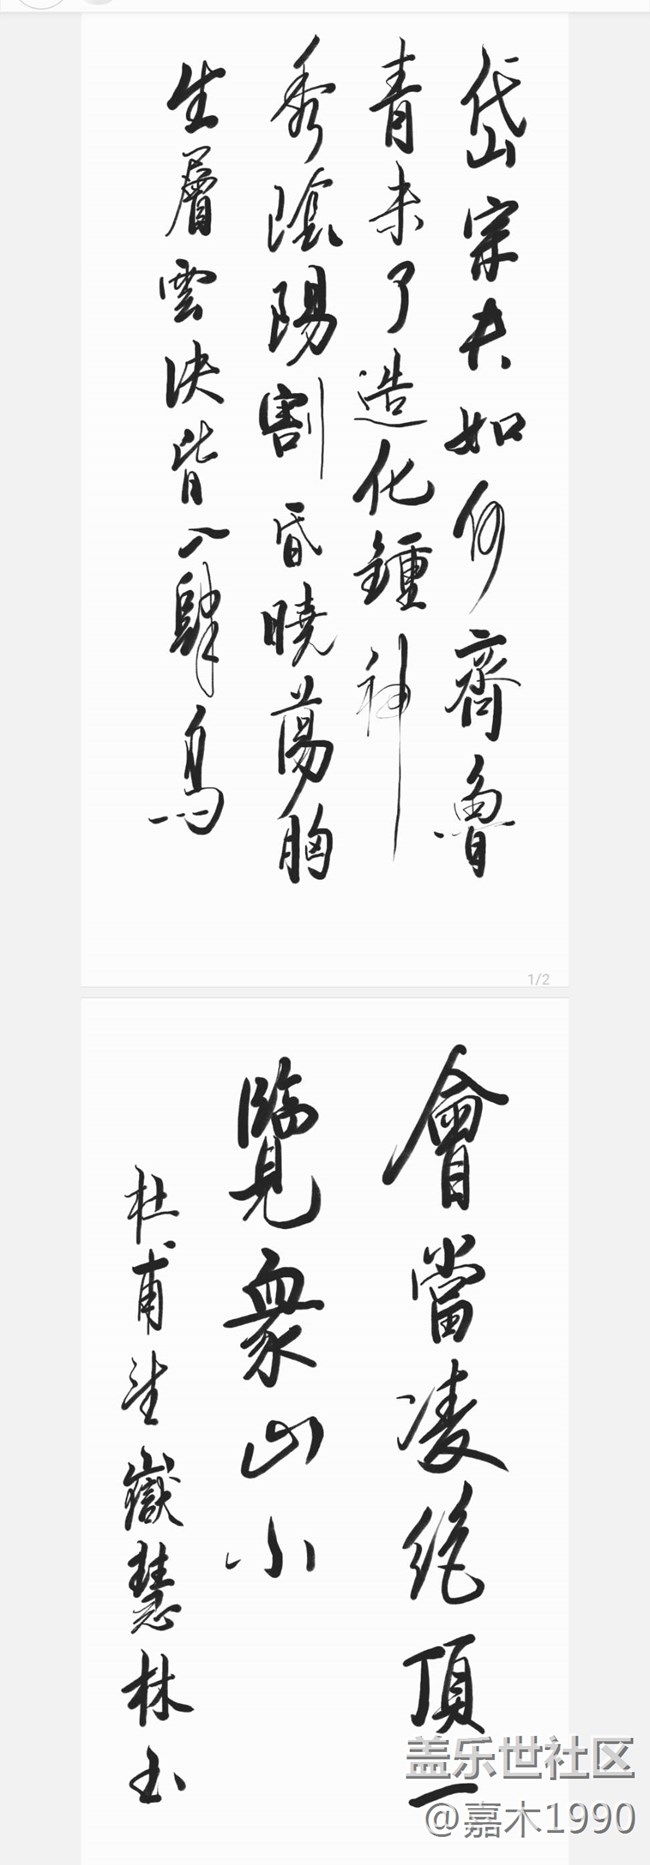 岱宗夫如何齊魯
青未了造化鍾神
秀陰陽割昏曉蕩胸
生層雲决眥入歸鳥
1/2
會當凌絶頂一
覽衆山小
杜甫望嶽慧林书
盖乐世社区
@嘉木1990